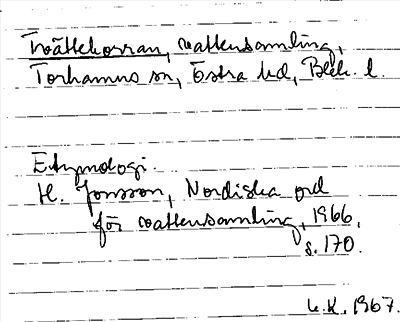 Tvättekorran, vattensamling,
Torhamns sn, Östra hd, Blek. l.
Etymologi.
H. Jonsson, Nordiska ord
för vattensamling, 1966,
s. 170.
L.K. 1967.